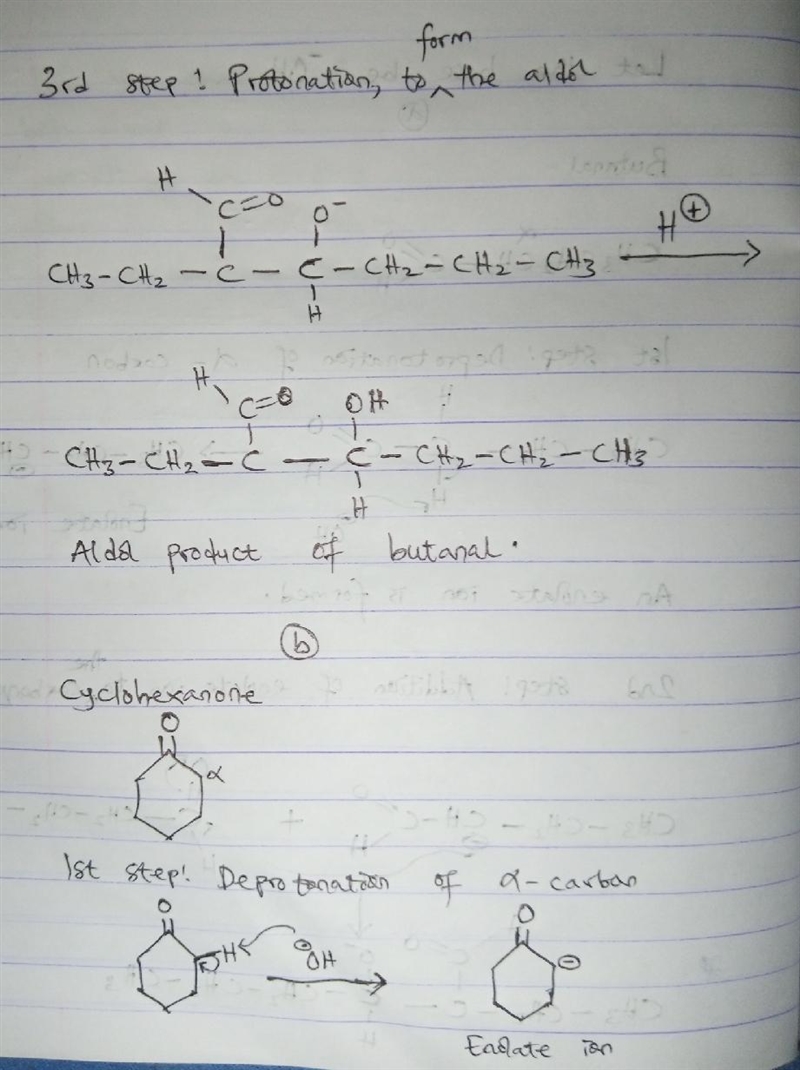 form
3rd step! Protonation, to ^ the aldol
H
C=O O⁻
CH3-CH2-C-C-CH2-CH2-CH3 H⊕
H
H
C=O OH
CH3-CH2-C-C-CH2-CH2-CH3
H
Aldol product of butanal.
(b)
Cyclohexanone
O
α
1st step! Deprotonation of α-carbon
O O
H ⊖OH ⊖
Enolate ion